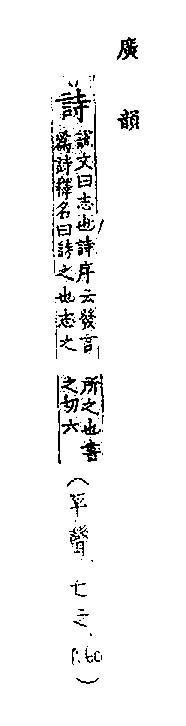 廣韻
詩
說文曰志也詩序云發言
為詩釋名曰詩之也志之
所之也書
之切六
(平聲、七之、P.60)